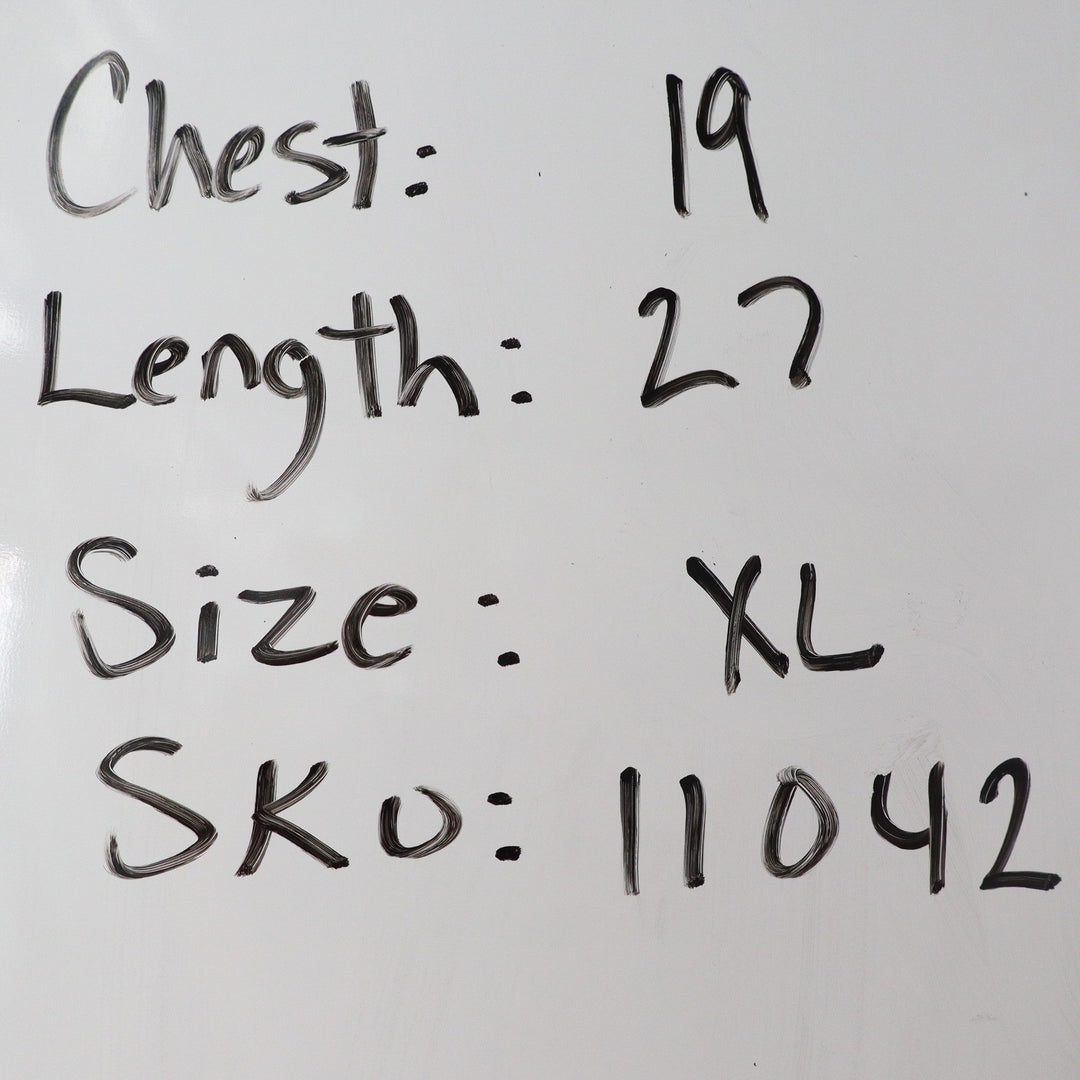 Chest: 19
Length: 27
Size: XL
SKU: 11042